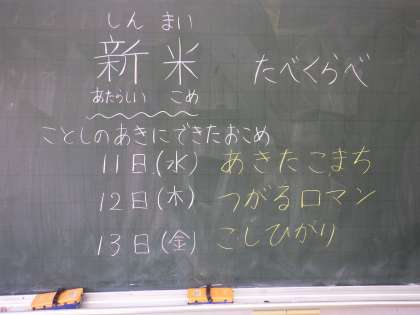 しん まい
新米 たべくらべ
あたらしい こめ
ことしのあきにできたおこめ
11日(水) あきたこまち
12日(木) つがるロマン
13日(金) こしひがり